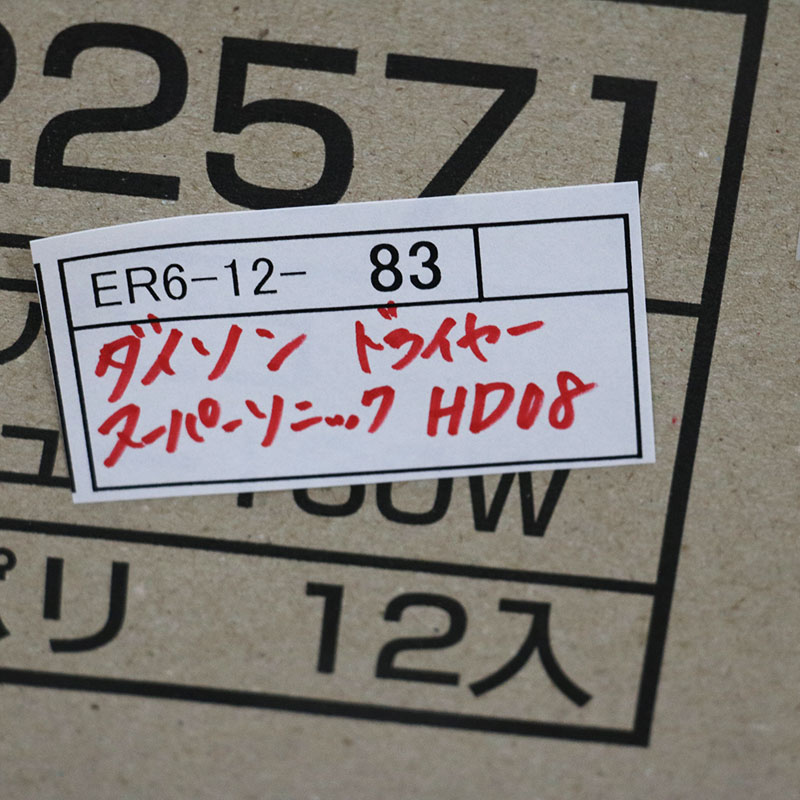 22571
ER6-12- 83
ダイソン ドライヤー
スーパーソニック HD08
12入